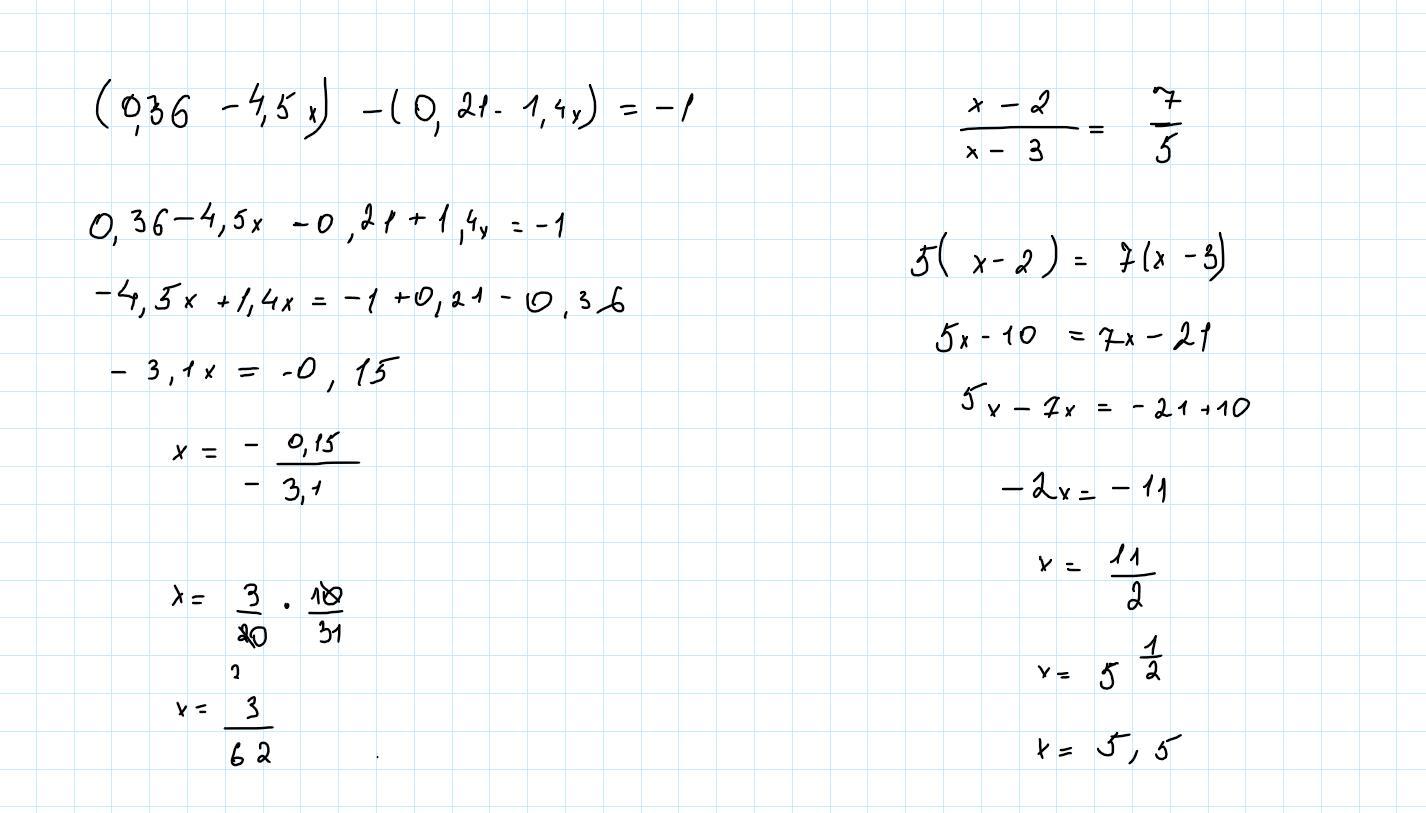 (0,36 - 4,5x) - (0,21 - 1,4x) = -1
0,36 - 4,5x - 0,21 + 1,4x = -1
-4,5x + 1,4x = -1 + 0,21 - 0,36
- 3,1x = -0,15
x = - 0,15 / - 3,1
x = 3/20 · 10/31
2
x = 3/62
x - 2 / x - 3 = 7/5
5(x - 2) = 7(x - 3)
5x - 10 = 7x - 21
5x - 7x = -21 + 10
-2x = -11
x = 11/2
x = 5 1/2
x = 5,5